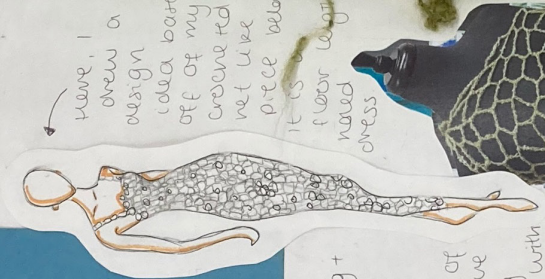 Here, I
drew a
design
idea
off of my
crocheted
net like
piece
It is
floor
dress
of
with